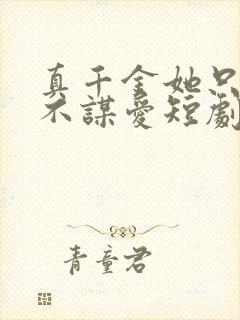 真千金她只
不謀愛短劇
青童君